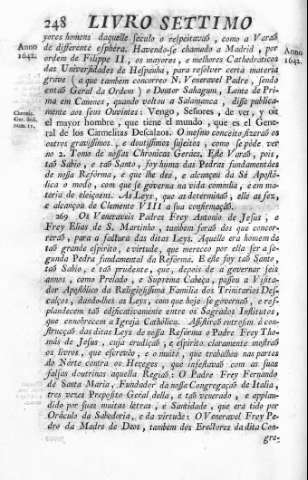 248 LIVRO SETTIMO
yores homens daquelle seculo o respeitavaõ, como a Varaõ
Anno 1642.
de differente esphéra. Havendo-se chamado a Madrid, por
Anno 1642.
ordem de Filippe II, os mayores, e melhores Cathedraticos
das Universidades de Hespanha, para resolver certa materia
grave (a que tambem concorreo N. Veneravel Padre, sendo
entaõ Geral da Ordem) o Doutor Sahagum, Lente de Pri-
ma em Canones, quando voltou a Salamanca, disse publica-
mente aos seus Ouvintes: Vengo, Señores, de ver, y oìr
el mayor hombre, que tiene el mundo, que es el Gene-
Chronic. Ger. lib. num. 11.
ral de los Carmelitas Descalzos. O mesmo conceito fizeraõ os
outros gravissimos, e doutissimos sujeitos, como se póde ver
no 2. Tomo de nossas Chronicas Geraes. Este Varaõ, pois,
taõ Sabio, e taõ Santo, foy huma das Pedras fundamentaes
de nossa Refórma, e que lhe deo, e alcançou da Sé Aposto-
lica o modo, com que se governa na vida commua, e em ma-
teria de eleiçoens. As Leys, que as determinaõ, elle as fez,
e alcançou de Clemente VIII a sua confirmaçaõ.
269 Os Veneraveis Padres Frey Antonio de Jesus, e
Frey Elias de S. Martinho, tambem foraõ dos que concor-
reraõ, para a factura das ditas Leys. Aquelle era homem de
taõ grande espirito, e virtude, que mereceo por elle ser a se-
gunda Pedra fundamental da Refórma. E este foy taõ Santo,
taõ Sabio, e taõ prudente, que, depois de a governar seis
annos, como Prelado, e Suprema Cabeça, passou a Visita-
dor Apostolico da Religiosissima Familia dos Trinitarios Des-
calços, dandolhes as Leys, com que hoje se governaõ, e res-
plandecem taõ edificativamente entre os Sagrados Institutos,
que ennobrecem a Igreja Catholica. Assistiraõ outrosim á con-
strucçaõ das ditas Leys de nossa Refórma o Padre Frey Tho-
más de Jesus, cuja erudiçaõ, e espirito claramente mostraõ
os livros, que escreveo, e o muito, que trabalhou nas partes
do Nórte contra os Hereges, que infestavaõ com as suas
falsas doutrinas aquella Regiaõ: O Padre Frey Fernando
de Santa Maria, Fundador da nossa Congregaçaõ de Italia,
tres vezes Preposito Geral della, e taõ venerado, e applau-
dido por suas muitas letras, e Santidade, que era tido por
Oráculo da Sabedoria, e da virtude: O Veneravel Frey Pe-
dro da Madre de Deos, tambem dos Erectores da dita Con-
gre-